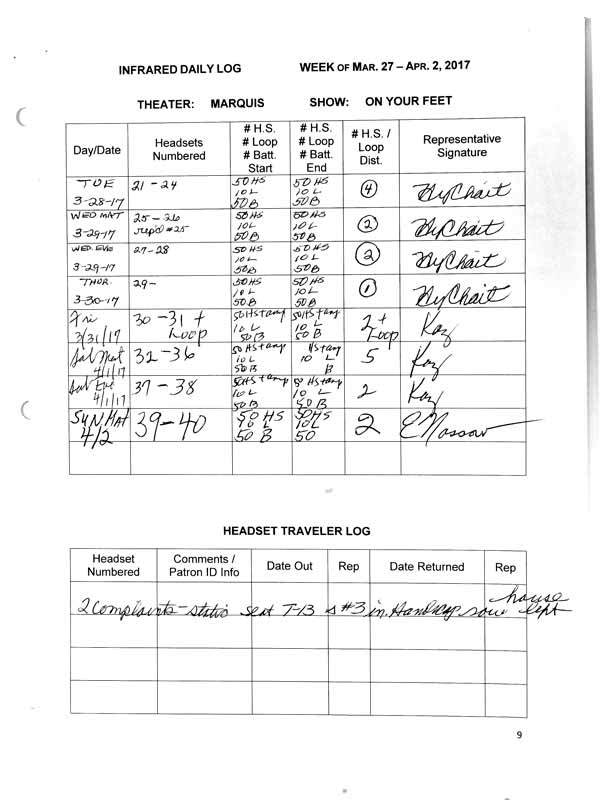 INFRARED DAILY LOG WEEK OF MAR. 27 – APR. 2, 2017
THEATER: MARQUIS SHOW: ON YOUR FEET
Day/Date Headsets Numbered # H.S. # Loop # Batt. Start # H.S. # Loop # Batt. End # H.S. / Loop Dist. Representative Signature
TUE 3-28-17 21-24 50 HS 10 L 50 B 50 HS 10 L 50 B 4
WED MAT 3-29-17 25-26 50 HS 10 L 50 B 50 HS 10 L 50 B 2
WED. EVE 3-29-17 27-28 50 HS 10 L 50 B 50 HS 10 L 50 B 2
THUR. 3-30-17 29- 50 HS 10 L 50 B 50 HS 10 L 50 B 1
Fri 3/31/17 30-31 + Loop 50 HS 10 L 50 B 50 HS 10 L 50 B 2 + Loop Kay
Sat Mat 4/1/17 32-36 50 HS 10 L 50 B HS 10 L B 5 Kay
Sat Eve 4/1/17 37-38 50 HS 10 L 50 B 50 HS 10 L 50 B 2 Kay
SUN MAT 4/2 39-40 50 HS 10 L 50 B 50 HS 10 L 50 2
HEADSET TRAVELER LOG
Headset Numbered Comments / Patron ID Info Date Out Rep Date Returned Rep
2 Complaints - static seat T-13 #3 in house left
9